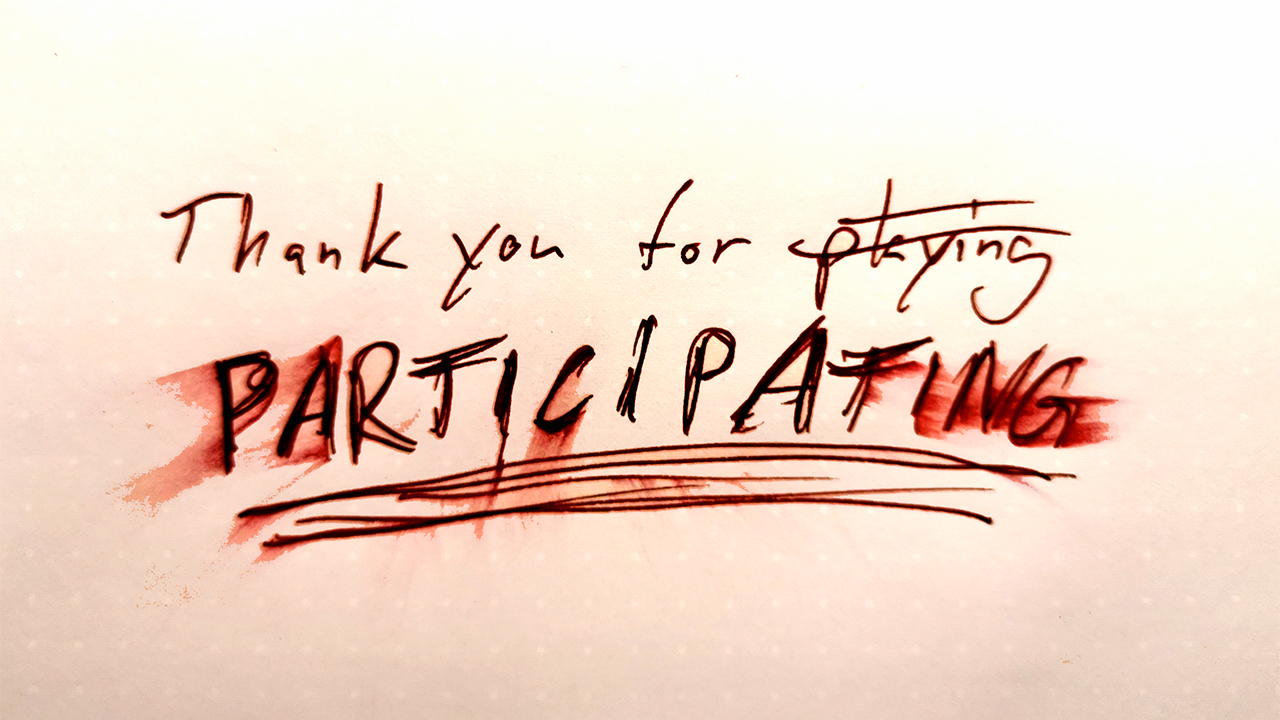 Thank you for playing
PARTICIPATING